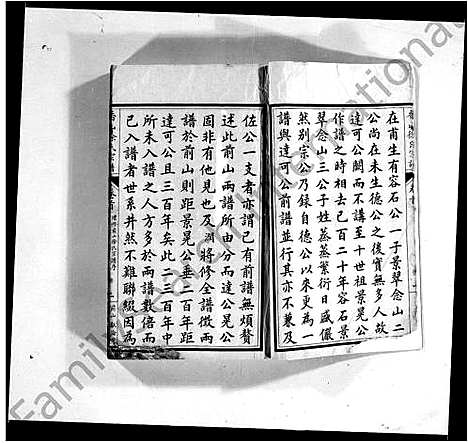 在甫生有容石公一子景翠念山二
公尚在未生德公之後實無多人故
達可公闕而不講至十世祖景晃公
作譜之時相去已百二十年容石景
翠念山三公子姓蒸蒸繁衍日盛儼
然别宗公乃錄自德公以來更為一
譜與達可公前譜並行其亦不兼及
佐公一支者亦謂已有前譜無煩贅
述此前山兩譜所由分而達公晃公
固非有他見也及溯將修全譜徵兩
譜於前山則距景晃公垂二百年距
達可公且三百年矣此二三百年中
所未入譜之人方多於兩譜數倍而
已入譜者世系井然不難聯綴因為